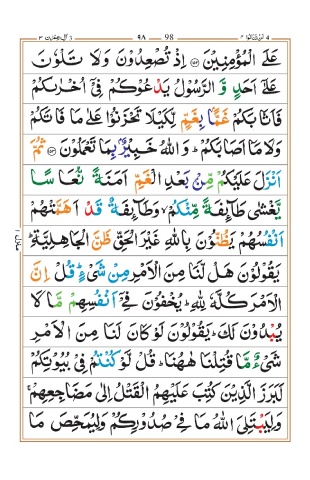 ٩٨ 98
عَلَى الْمُؤْمِنِيْنَ ۝١٥٢ اِذْ تُصْعِدُوْنَ وَلَا تَلْوٗنَ
عَلٰٓى اَحَدٍ وَّ الرَّسُوْلُ يَدْعُوْكُمْ فِيْٓ اُخْرٰىكُمْ
فَاَثَابَكُمْ غَمًّۢا بِغَمٍّ لِّكَيْلَا تَحْزَنُوْا عَلٰى مَا فَاتَكُمْ
وَلَا مَآ اَصَابَكُمْ ؕ وَاللّٰهُ خَبِيْرٌۢ بِمَا تَعْمَلُوْنَ ۝١٥٣ ثُمَّ
اَنْزَلَ عَلَيْكُمْ مِّنْۢ بَعْدِ الْغَمِّ اَمَنَةً نُّعَاسًا
يَّغْشٰى طَآئِفَةً مِّنْكُمْ ۙ وَطَآئِفَةٌ قَدْ اَهَمَّتْهُمْ
اَنْفُسُهُمْ يَظُنُّوْنَ بِاللّٰهِ غَيْرَ الْحَقِّ ظَنَّ الْجَاهِلِيَّةِ ؕ
يَقُوْلُوْنَ هَلْ لَّنَا مِنَ الْاَمْرِ مِنْ شَيْءٍ ؕ قُلْ اِنَّ
الْاَمْرَ كُلَّهٗ لِلّٰهِ ؕ يُخْفُوْنَ فِيْٓ اَنْفُسِهِمْ مَّا لَا
يُبْدُوْنَ لَكَ ؕ يَقُوْلُوْنَ لَوْ كَانَ لَنَا مِنَ الْاَمْرِ
شَيْءٌ مَّا قُتِلْنَا هٰهُنَا ؕ قُلْ لَّوْ كُنْتُمْ فِيْ بُيُوْتِكُمْ
لَبَرَزَ الَّذِيْنَ كُتِبَ عَلَيْهِمُ الْقَتْلُ اِلٰى مَضَاجِعِهِمْ ۚ
وَلِيَبْتَلِيَ اللّٰهُ مَا فِيْ صُدُوْرِكُمْ وَلِيُمَحِّصَ مَا